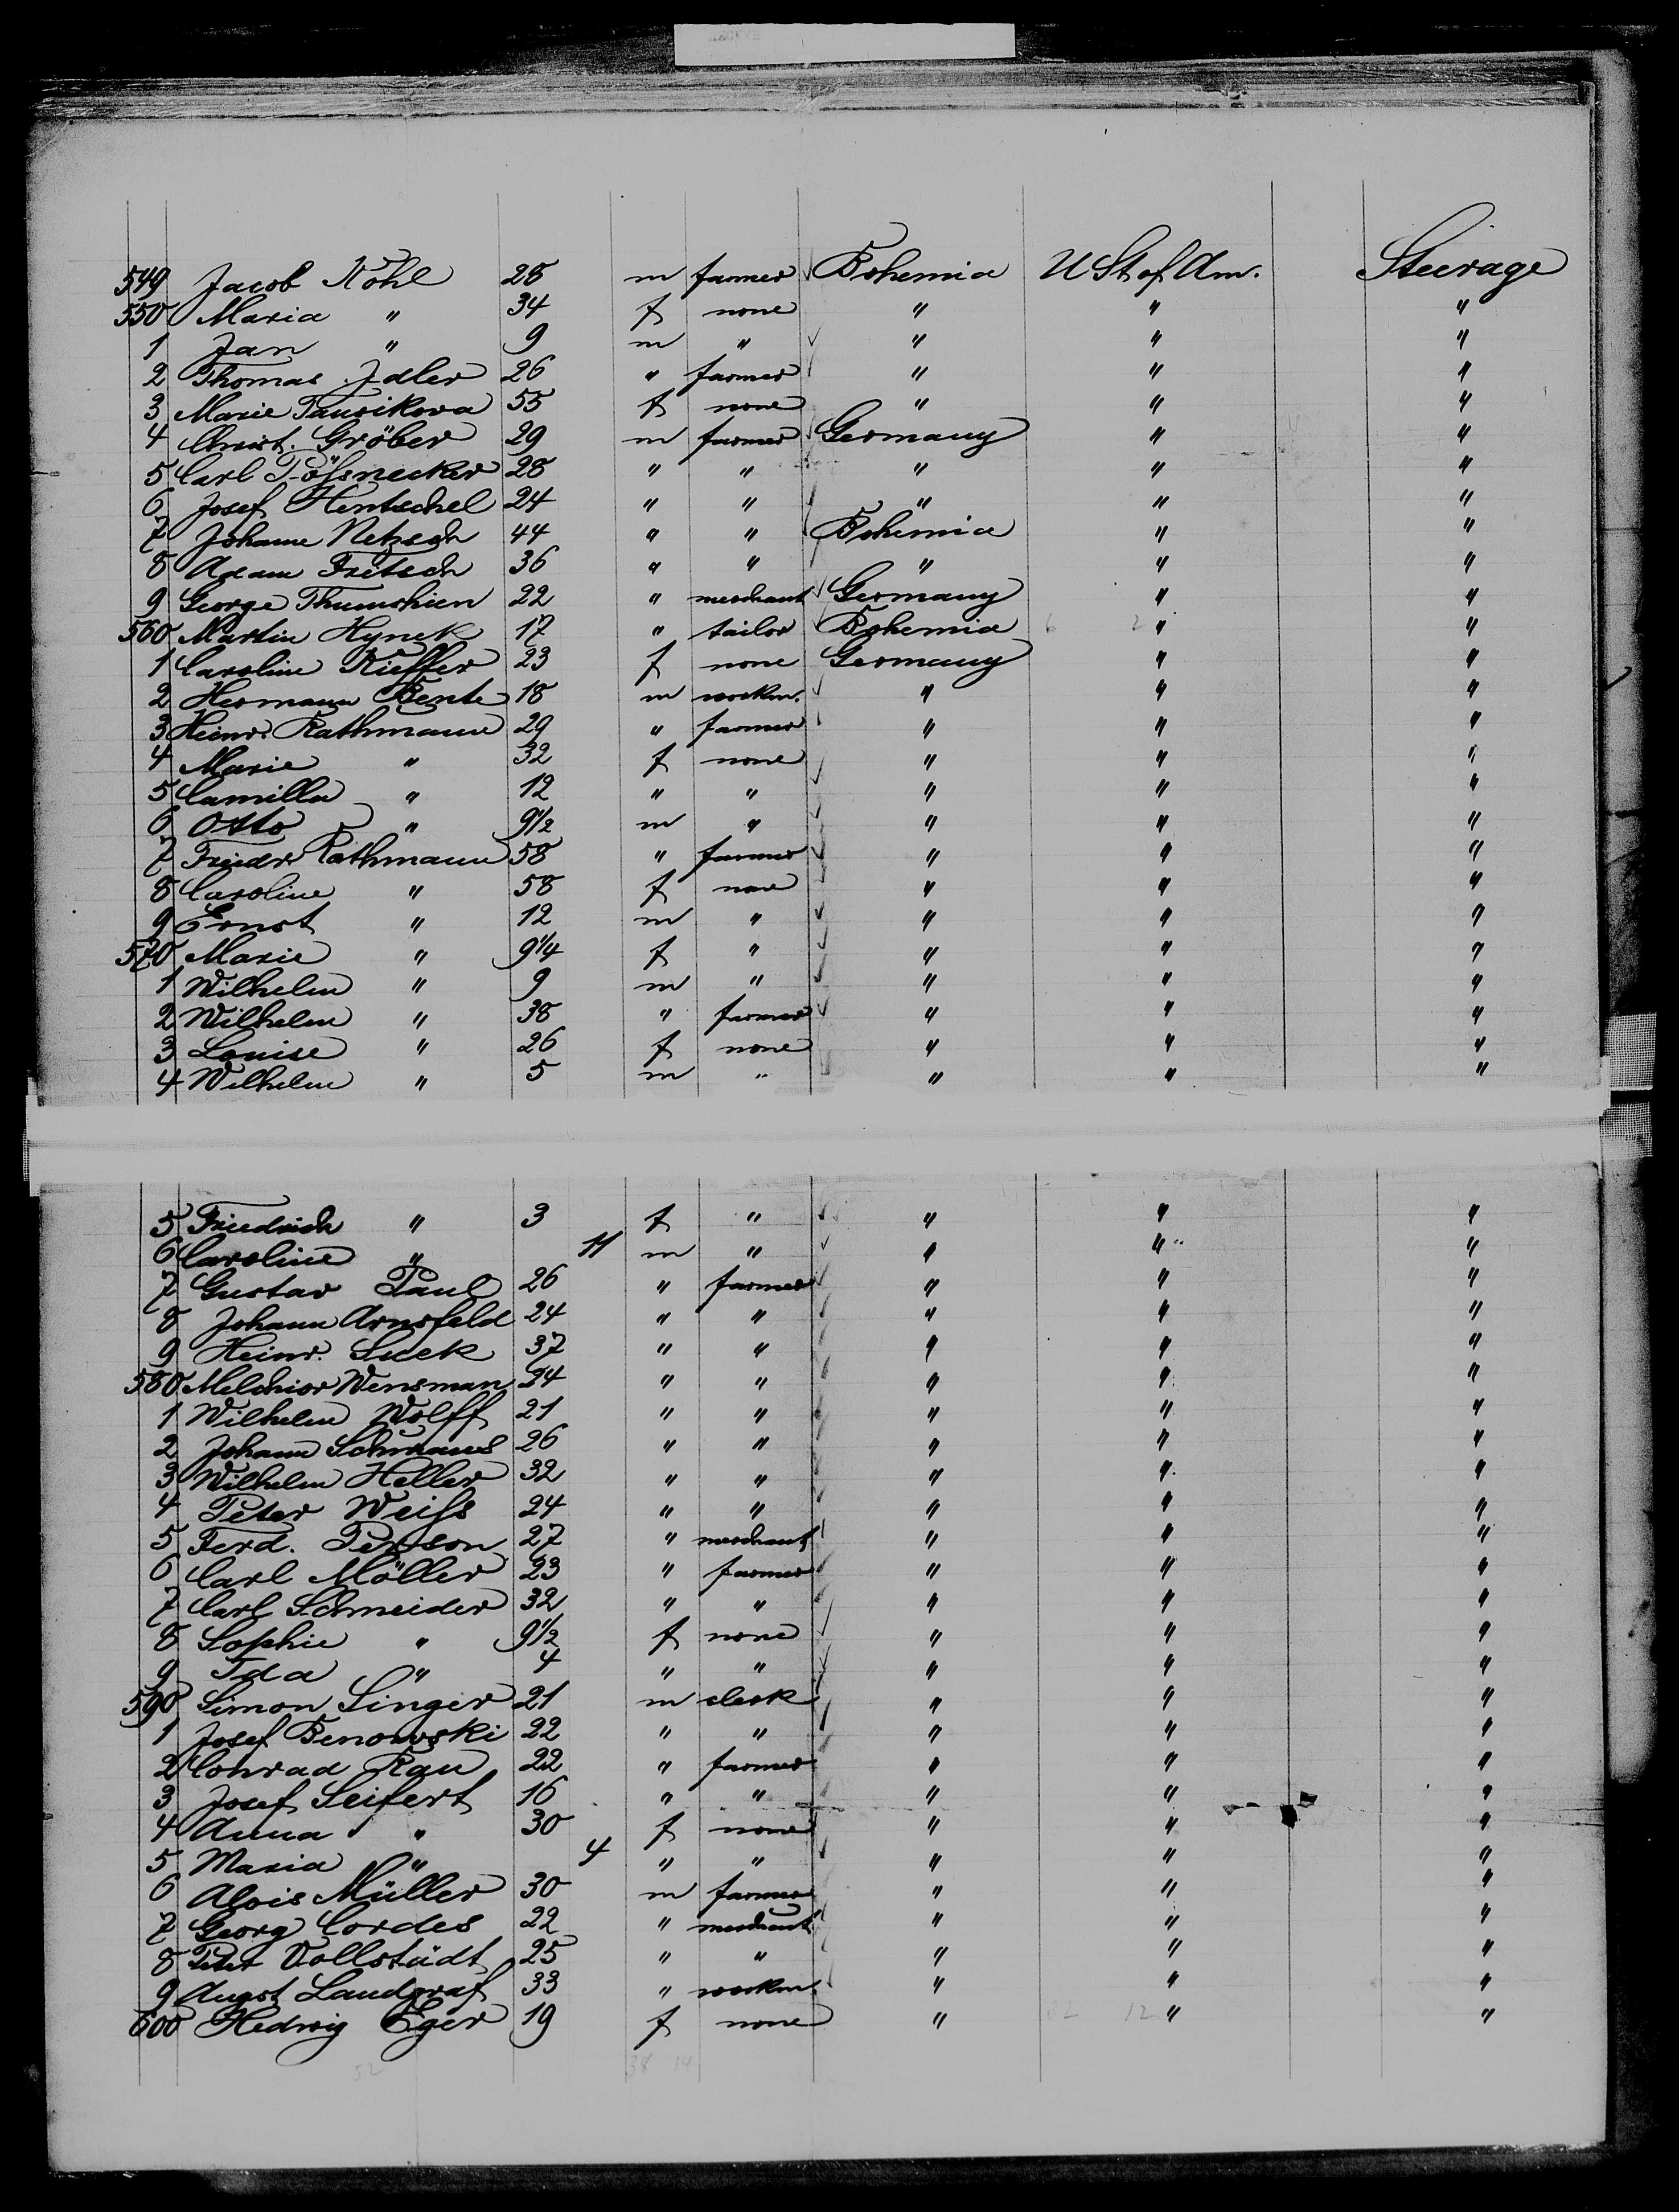 549 Jacob Köhl 28 m farmer Bohemia U St of Am. Steerage
550 Maria " 34 f none " " "
1 Jan " 9 m " " " "
2 Thomas Idler 26 " farmer " " "
3 Marie 55 f none " " "
4 Christ. Gröber 29 m farmer Germany " "
5 Carl Pößnecker 28 " " " " "
6 Josef Hentschel 24 " " " " "
7 Johann Netzsch 44 " " Bohemia " "
8 Adam Fritsch 36 " " " " "
9 George 22 " merchant Germany " "
560 Martin Hynek 17 " tailor Bohemia " "
1 Caroline Kieffer 23 f none Germany " "
2 Hermann Bente 18 m workm. " " "
3 Heinr. Rathmann 29 " farmer " " "
4 Marie " 32 f none " " "
5 Camilla " 12 " " " " "
6 Otto " 9 1/2 m " " " "
7 Friedr Rathmann 58 " farmer " " "
8 Caroline " 58 f none " " "
9 Ernst " 12 m " " " "
570 Marie " 9 1/4 f " " " "
1 Wilhelm " 9 m " " " "
2 Wilhelm " 38 " farmer " " "
3 Louise " 26 f none " " "
4 Wilhelm " 5 m " " " "
5 Friedrich " 3 f " " " "
6 Caroline " 11 m " " " "
7 Gustav Paul 26 " farmer " " "
8 Johann Arnsfeld 24 " " " " "
9 Heinr. Suck 37 " " " " "
580 Melchior Wensman 24 " " " " "
1 Wilhelm Wolff 21 " " " " "
2 Johann 26 " " " " "
3 Wilhelm Heller 32 " " " " "
4 Peter Weiß 24 " " " " "
5 Ferd. 27 " merchant " " "
6 Carl Möller 23 " farmer " " "
7 Carl Schneider 32 " " " " "
8 Sophie " 9 1/2 f none " " "
9 Ida " 4 " " " " "
590 Simon Singer 21 m clerk " " "
1 Josef Benowski 22 " " " " "
2 Conrad Rau 22 " farmer " " "
3 Josef Seifert 16 " " " " "
4 Anna " 30 f none " " "
5 Maria " 4 " " " " "
6 Alois Müller 30 m farmer " " "
7 Georg Cordes 22 " merchant " " "
8 Peter Vollstädt 25 " " " " "
9 Augst Landgraf 33 " workm. " " "
600 Hedwig Eger 19 f none " " "